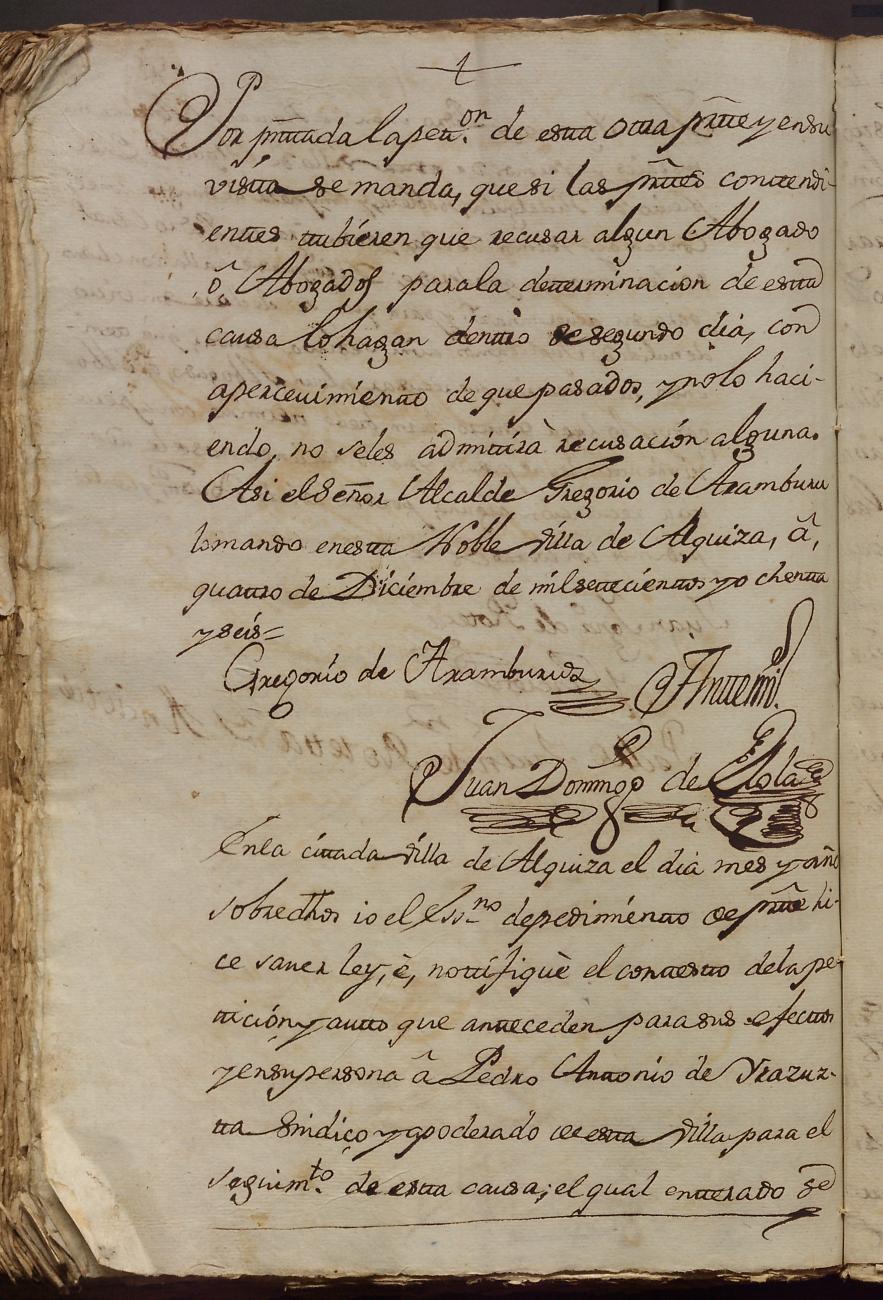 Por prntada la petn.on de esta otta prtte y en su
vistta se manda, que si las prttes conttendi-
enttes ttubieren que recusar algun Abogado
ô Abogados para la detterminacion de estta
causa lo hagan denttro de segundo dia, con
apercevimientto de que pasados, y no lo haci-
endo, no seles admittirà recusación alguna.
Asi el Señor Alcalde Gregorio de Aramburu
lo mando en estta Noble Villa de Alquiza, â,
quattro de Diciembre de mil settecienttos y ochentta
y seis=
Gregorio de Aramburu Antte mi
Juan Domingo de
En la cittada Villa de Alquiza el dia mes y año
sobredhos io el Ssno de pedimientto de prtte hi-
ce saver ley, è, nottifiquè el conttestto de la pe-
ttición y autto que antteceden para sus efecttos
y en su persona â Pedro Anttonio de Yrazuz-
tta Sindico y apoderado de estta Villa para el
seguimto. de estta causa; el qual entterado se